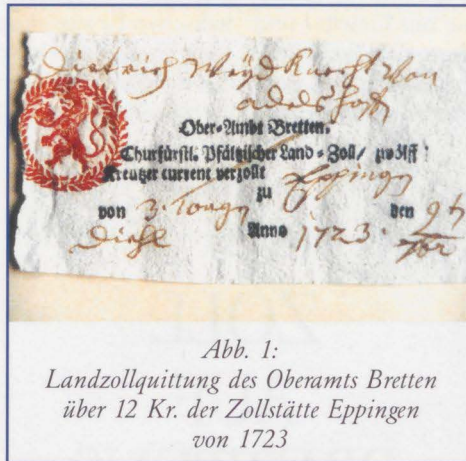 Dietrich Weydknecht von
adelshofen
Ober-Ambt Bretten.
Churfürstl. Pfältzischer Land-Zoll/ zwölff
Kreutzer current verzollt Epping
zu
von 3. den 9t
Diehl Anno 1723.
Abb. 1:
Landzollquittung des Oberamts Bretten
über 12 Kr. der Zollstätte Eppingen
von 1723